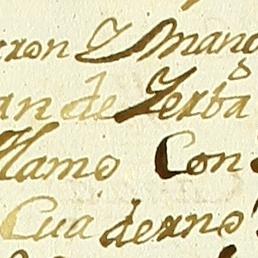 rron Y Manç
an de Yerba
llamo Con
Cuaderno